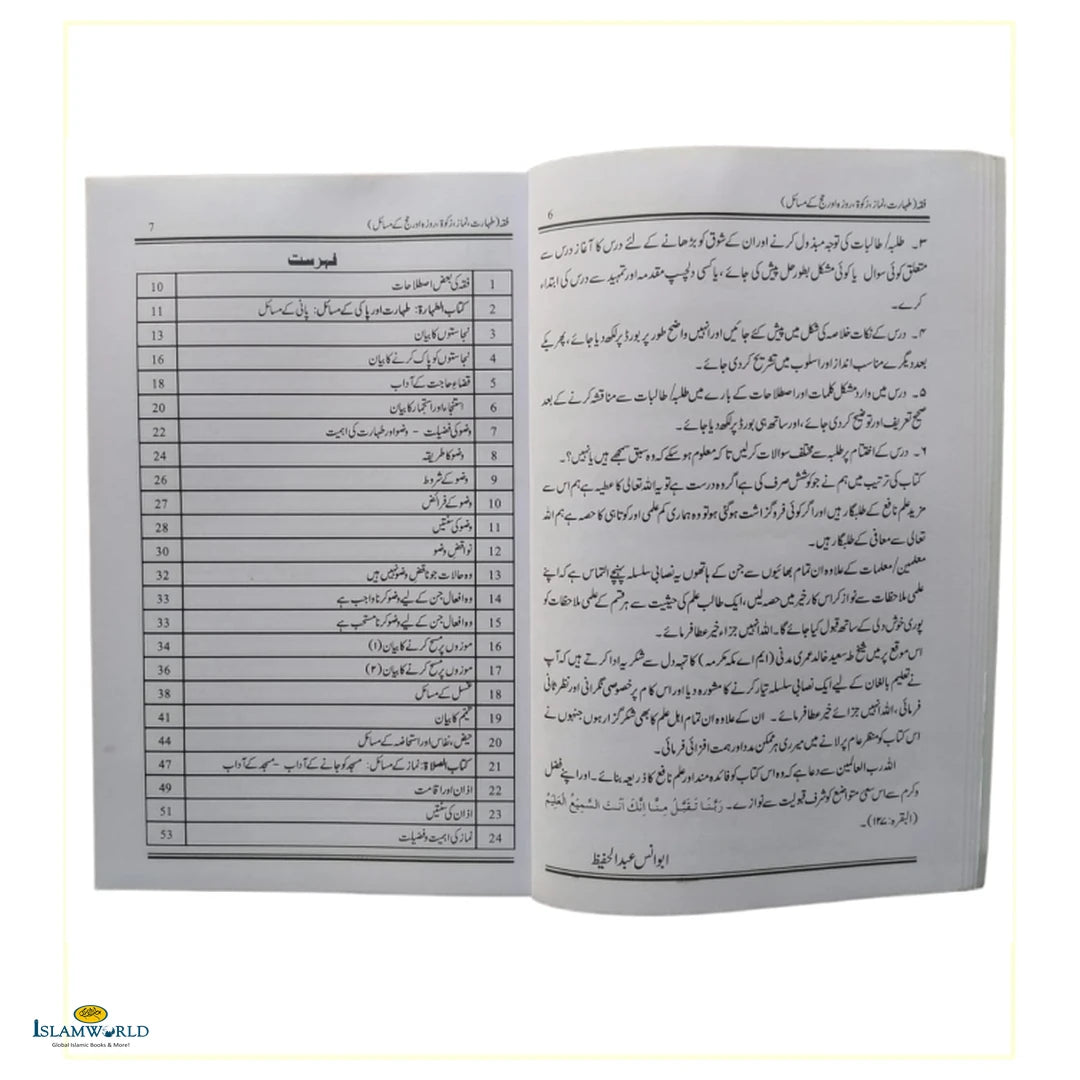 فقہ (طہارت، نماز، زکوٰۃ، روزہ اور حج کے مسائل)
6
۳۔ طلبہ/ طالبات کی توجہ مبذول کرنے اور ان کے شوق کو بڑھانے کے لئے درس کا آغاز درس سے
متعلق کوئی سوال یا کوئی مشکل بطور حل پیش کی جائے، یا کسی دلچسپ مقدمہ اور تمہید سے درس کی ابتداء
کرے۔
۴۔ درس کے نکات خلاصہ کی شکل میں پیش کئے جائیں اور انہیں واضح طور پر بورڈ پر لکھ دیا جائے، پھر یکے
بعد دیگرے مناسب انداز اور اسلوب میں تشریح کر دی جائے۔
۵۔ درس میں وارد مشکل کلمات اور اصطلاحات کے بارے میں طلبہ/ طالبات سے مناقشہ کرنے کے بعد
صحیح تعریف اور توضیح کر دی جائے، اور ساتھ ہی بورڈ پر لکھ دیا جائے۔
۶۔ درس کے اختتام پر طلبہ سے مختلف سوالات کر لیں تاکہ معلوم ہو سکے کہ وہ سبق سمجھے ہیں یا نہیں؟۔
کتاب کی ترتیب میں ہم نے جو کوشش صرف کی ہے اگر وہ درست ہے تو یہ اللہ تعالی کا عطیہ ہے ہم اس سے
مزید علم نافع کے طلبگار ہیں اور اگر کوئی فروگزاشت ہو گئی ہو تو وہ ہماری کم علمی اور کوتاہی کا حصہ ہے ہم اللہ
تعالی سے معافی کے طلبگار ہیں۔
معلمین/ معلمات کے علاوہ ان تمام بھائیوں سے جن کے ہاتھوں یہ نصابی سلسلہ پہنچے التماس ہے کہ اپنے
علمی ملاحظات سے نواز کر اس کار خیر میں حصہ لیں، ایک طالب علم کی حیثیت سے ہر قسم کے علمی ملاحظات کو
پوری خوش دلی کے ساتھ قبول کیا جائے گا۔ اللہ انہیں جزاء خیر عطا فرمائے۔
اس موقع پر میں شیخ طہ سعید خالد عمری مدنی (ایم اے مکہ مکرمہ) کا تہہ دل سے شکریہ ادا کرتے ہیں کہ آپ
نے تعلیم بالغان کے لیے ایک نصابی سلسلہ تیار کرنے کا مشورہ دیا اور اس کام پر خصوصی نگرانی اور نظر ثانی
فرمائی، اللہ انہیں جزائے خیر عطا فرمائے۔ ان کے علاوہ ان تمام اہل علم کا بھی شکر گزار ہوں جنہوں نے
اس کتاب کو منظر عام پر لانے میں میرری ہر ممکن مدد اور ہمت افزائی فرمائی۔
اللہ رب العالمین سے دعا ہے کہ وہ اس کتاب کو فائدہ مند اور علم نافع کا ذریعہ بنائے۔ اور اپنے فضل
وکرم سے اس سعی متواضع کو شرف قبولیت سے نوازے۔ رَبَّنَا تَقَبَّلْ مِنَّا إِنَّكَ أَنْتَ السَّمِيْعُ الْعَلِيْمُ
(البقرہ: ۱۲۷)۔
ابوانس عبدالحفیظ
فقہ (طہارت، نماز، زکوٰۃ، روزہ اور حج کے مسائل)
7
فہرست
1 فقہ کی بعض اصطلاحات 10
2 کتاب الطہارۃ: طہارت اور پاکی کے مسائل: پانی کے مسائل 11
3 نجاستوں کا بیان 13
4 نجاستوں کو پاک کرنے کا بیان 16
5 قضاءِ حاجت کے آداب 18
6 استنجاء اور استجمار کا بیان 20
7 وضو کی فضیلت - وضو اور طہارت کی اہمیت 22
8 وضو کا طریقہ 24
9 وضو کے شروط 26
10 وضو کے فرائض 27
11 وضو کی سنتیں 28
12 نواقض وضو 30
13 وہ حالات جو ناقض وضو نہیں ہیں 32
14 وہ افعال جن کے لیے وضو کرنا واجب ہے 33
15 وہ افعال جن کے لیے وضو کرنا مستحب ہے 33
16 موزوں پر مسح کرنے کا بیان (۱) 34
17 موزوں پر مسح کرنے کا بیان (۲) 36
18 غسل کے مسائل 38
19 تیمّم کا بیان 41
20 حیض، نفاس اور استحاضہ کے مسائل 44
21 کتاب الصلاۃ: نماز کے مسائل: مسجد کو جانے کے آداب - مسجد کے آداب 47
22 اذان اور اقامت 49
23 اذان کی سنتیں 51
24 نماز کی اہمیت و فضیلت 53
ISLAMWORLD
Global Islamic Books & More!